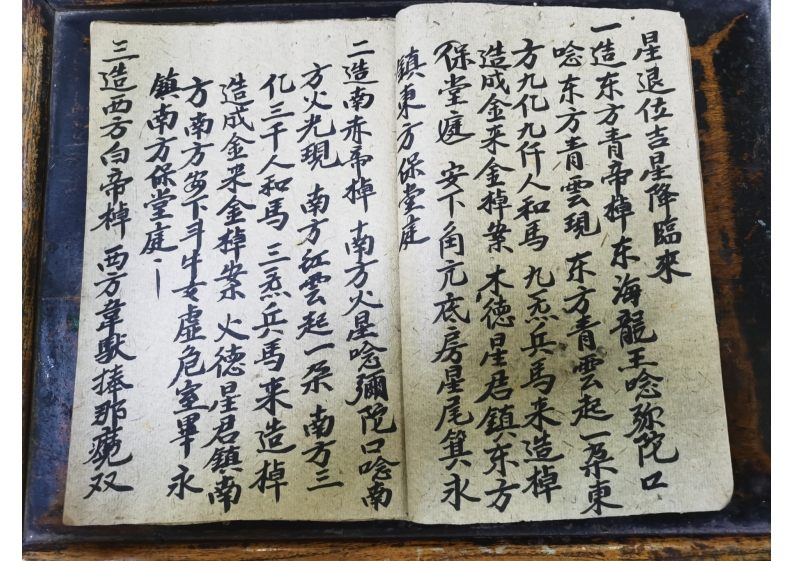 星退位吉星降臨来
一造东方青帝棹东海龍王唸弥陀口
唸东方青雲現东方青雲起一朶東
方九化九仟人和馬九炁兵馬来造棹
造成金来金棹案木德星君鎮东方
保堂庭安下角亢底房星尾箕永
鎮東方保堂庭
二造南赤帝棹南方火星唸彌陀口唸南
方火光現南方红雲起一朶南方三
化三千人和馬三炁兵馬来造棹
造成金来金棹案火德星君鎮南
方南方安下斗牛女虛危室畢永
鎮南方保堂庭
三造西方白帝棹西方韋馱捧那魔双